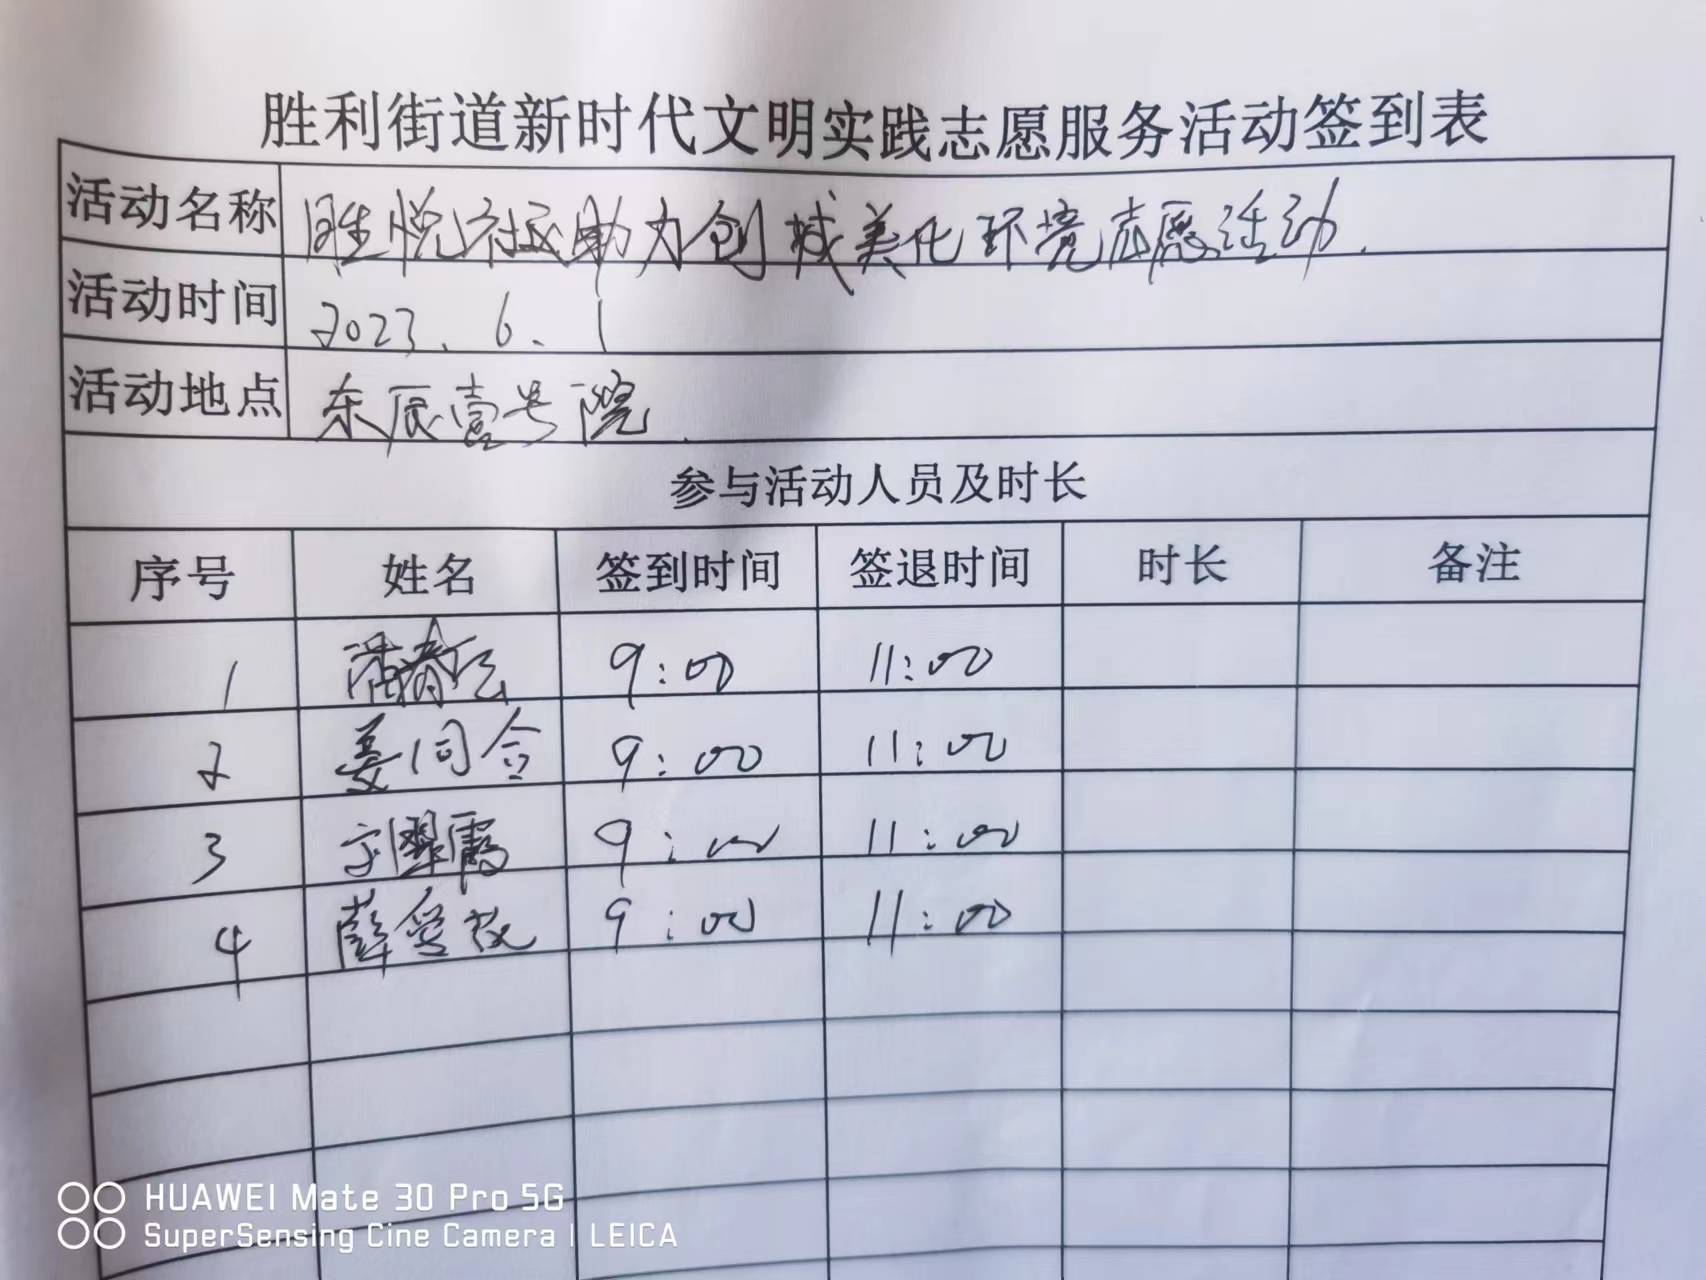 胜利街道新时代文明实践志愿服务活动签到表
活动名称 胜悦社区助力创城美化环境志愿活动.
活动时间 2023.6.1
活动地点 东辰壹号院.
参与活动人员及时长
序号 姓名 签到时间 签退时间 时长 备注
1 潘春云 9:00 11:00
2 姜同合 9:00 11:00
3 刘翠霞 9:00 11:00
4 薛爱 9:00 11:00
HUAWEI Mate 30 Pro 5G
SuperSensing Cine Camera | LEICA